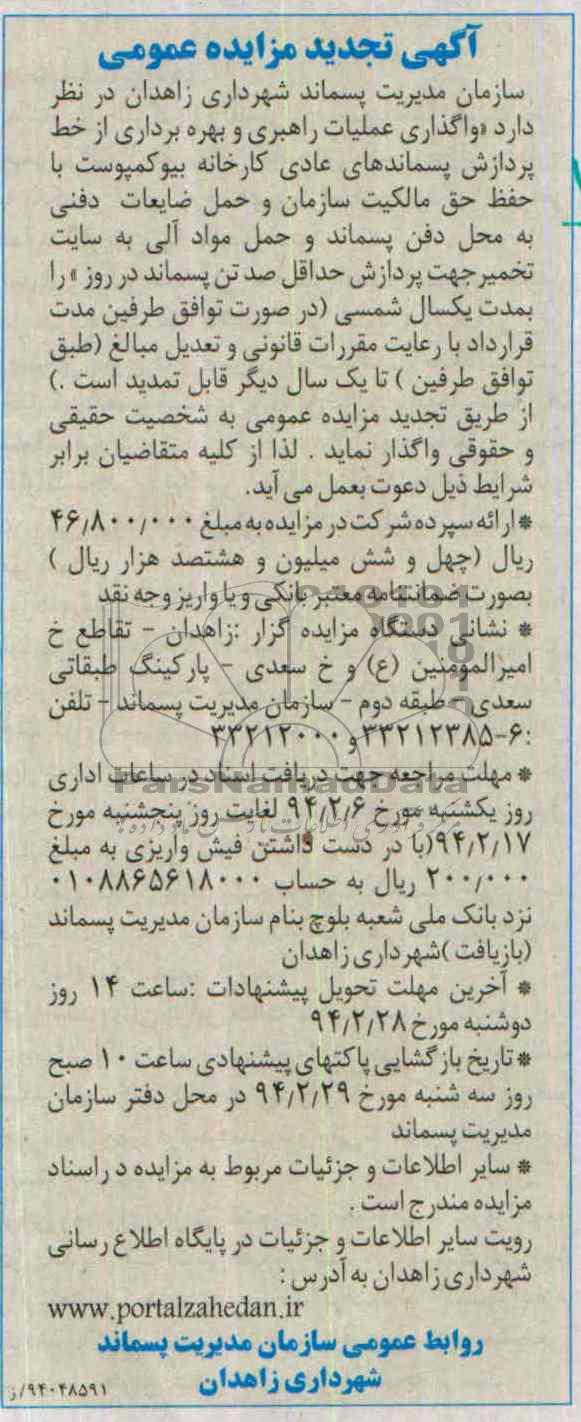 آگهی تجدید مزایده عمومی
سازمان مدیریت پسماند شهرداری زاهدان در نظر
دارد «واگذاری عملیات راهبری و بهره برداری از خط
پردازش پسماندهای عادی کارخانه بیوکمپوست با
حفظ حق مالکیت سازمان و حمل ضایعات دفنی
به محل دفن پسماند و حمل مواد آلی به سایت
تخمیر جهت پردازش حداقل صد تن پسماند در روز » را
بمدت یکسال شمسی (در صورت توافق طرفین مدت
قرارداد با رعایت مقررات قانونی و تعدیل مبالغ (طبق
توافق طرفین ) تا یک سال دیگر قابل تمدید است .)
از طریق تجدید مزایده عمومی به شخصیت حقیقی
و حقوقی واگذار نماید . لذا از کلیه متقاضیان برابر
شرایط ذیل دعوت بعمل می آید.
* ارائه سپرده شرکت در مزایده به مبلغ ۴۶/۸۰۰/۰۰۰
ریال (چهل و شش میلیون و هشتصد هزار ریال )
بصورت ضمانتنامه معتبر بانکی و یا واریز وجه نقد
* نشانی دستگاه مزایده گزار :زاهدان - تقاطع خ
امیرالمومنین (ع) و خ سعدی - پارکینگ طبقاتی
سعدی - طبقه دوم - سازمان مدیریت پسماند - تلفن
:۶-۳۳۲۱۲۳۸۵ و ۳۳۲۱۲۰۰۰
ParsNamadData
* مهلت مراجعه جهت دریافت اسناد در ساعات اداری
روز یکشنبه مورخ ۹۴/۲/۶ لغایت روز پنجشنبه مورخ
۹۴/۲/۱۷(با در دست داشتن فیش واریزی به مبلغ
۲۰۰/۰۰۰ ریال به حساب ۰۱۰۸۸۶۵۶۱۸۰۰۰
نزد بانک ملی شعبه بلوچ بنام سازمان مدیریت پسماند
(بازیافت )شهرداری زاهدان
* آخرین مهلت تحویل پیشنهادات :ساعت ۱۴ روز
دوشنبه مورخ ۹۴/۲/۲۸
* تاریخ بازگشایی پاکتهای پیشنهادی ساعت ۱۰ صبح
روز سه شنبه مورخ ۹۴/۲/۲۹ در محل دفتر سازمان
مدیریت پسماند
* سایر اطلاعات و جزئیات مربوط به مزایده د راسناد
مزایده مندرج است .
رویت سایر اطلاعات و جزئیات در پایگاه اطلاع رسانی
شهرداری زاهدان به آدرس :
www.portalzahedan.ir
روابط عمومی سازمان مدیریت پسماند
شهرداری زاهدان
۹۴۰۴۸۵۹۱/ز